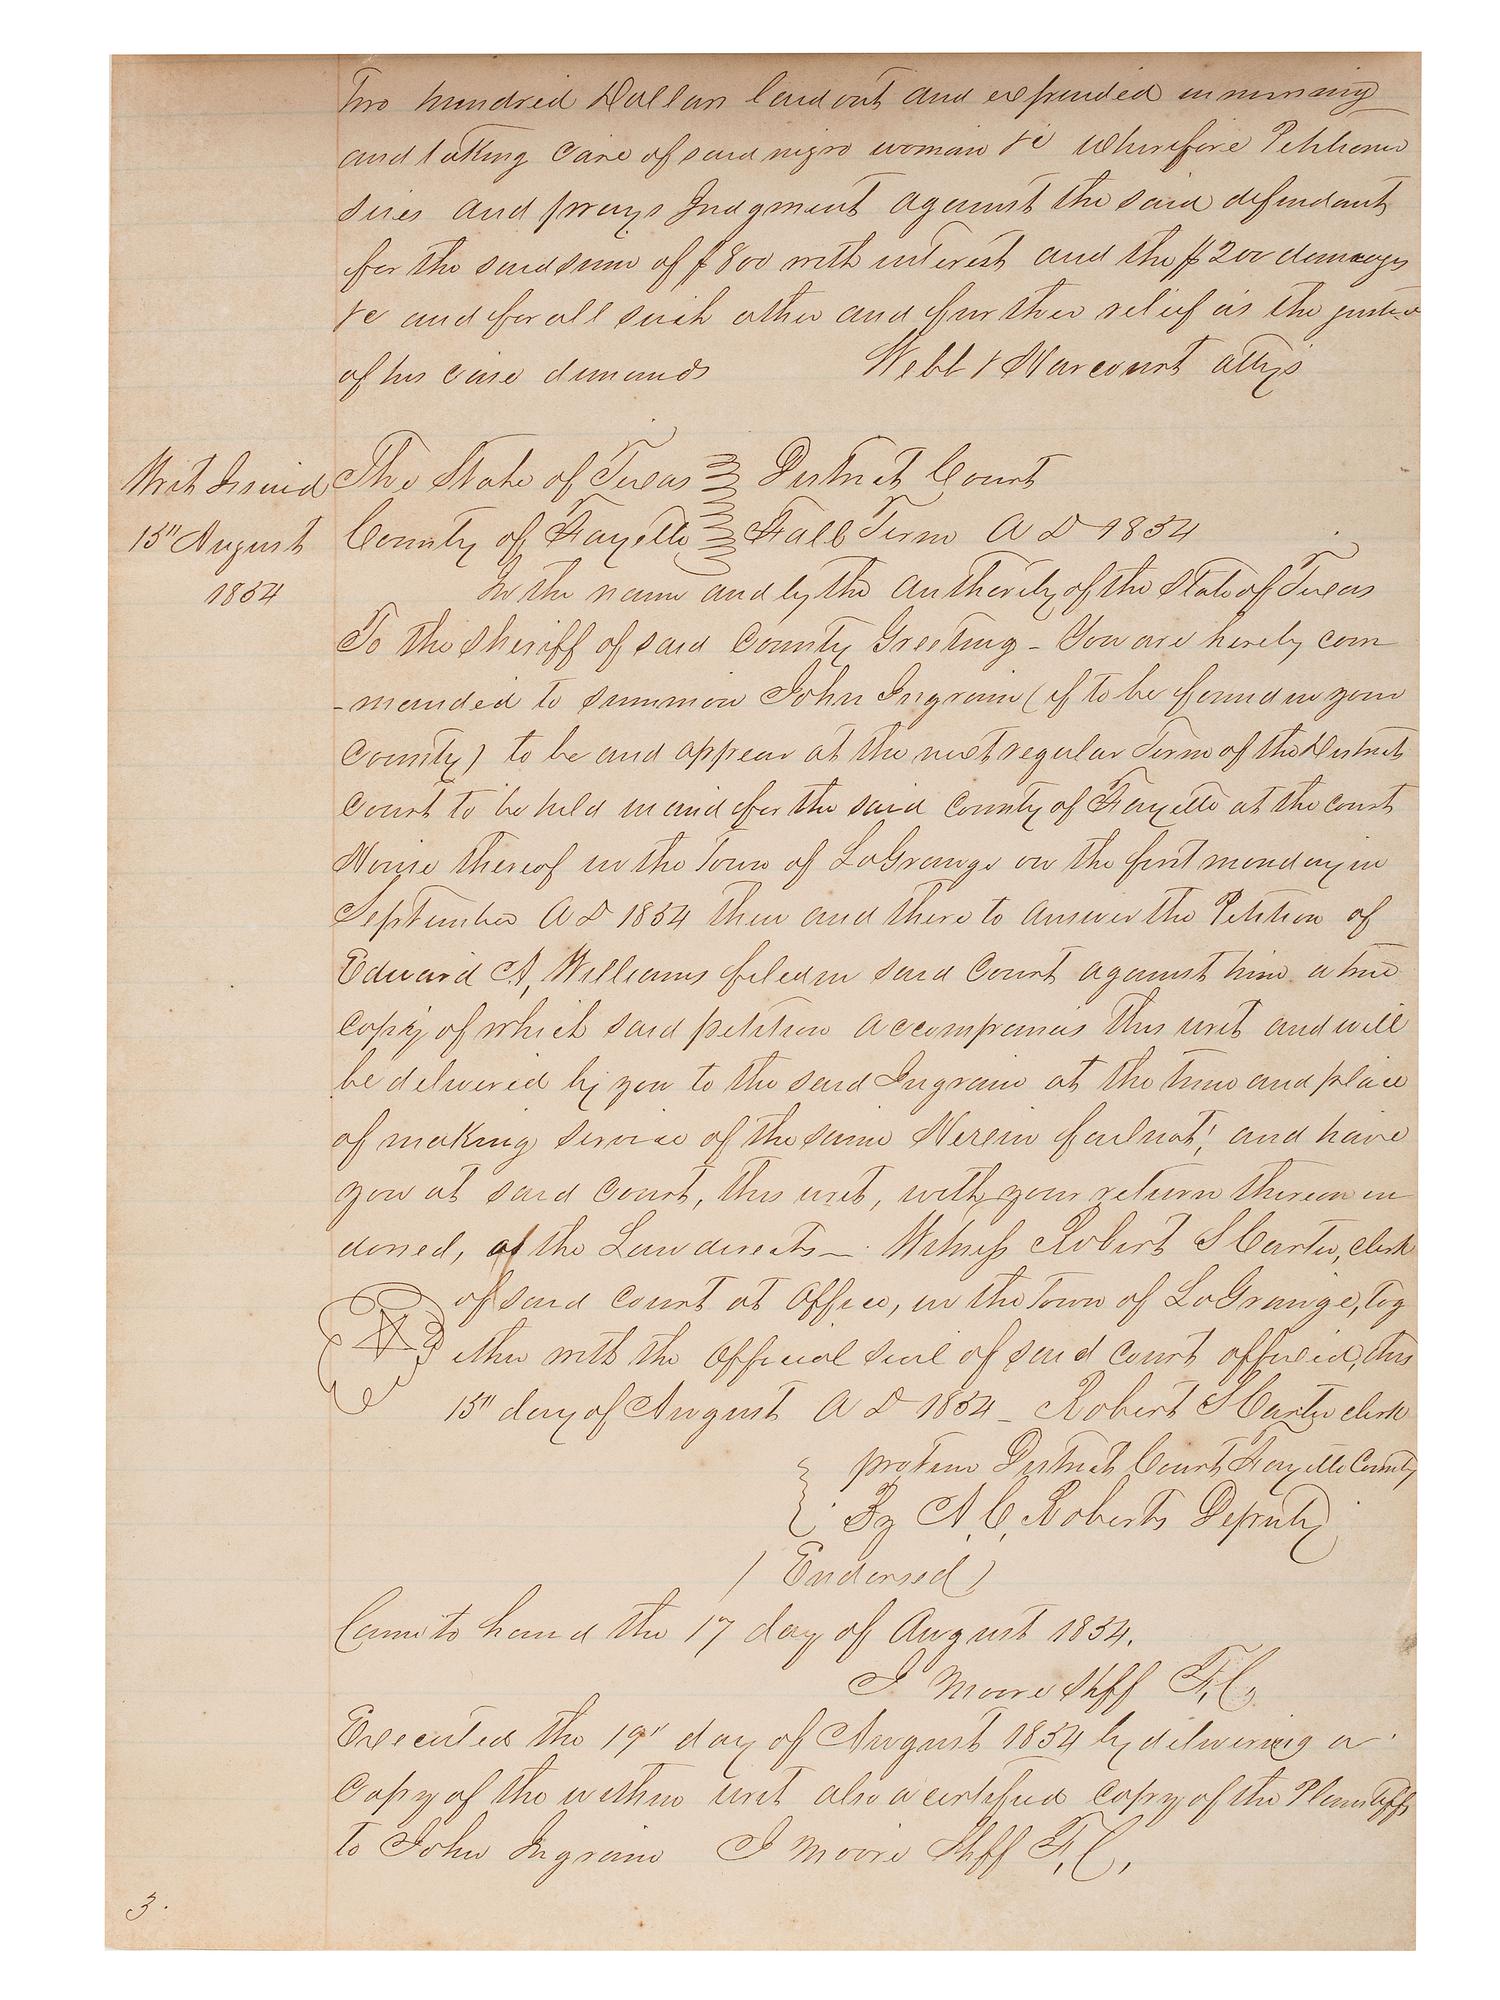 Two hundred Dollars laid out and expended in nursing
and taking care of said negro woman &c wherefore Petitioner
sues and prays Judgment against the said defendant
for the said sum of $800 with interest and the $200 damages
&c and for all such other and further relief as the justice
of his case demands Webb & Harcourt attys
Writ Issued
15" August
1854
The State of Texas District Court
County of Fayette Fall Term A D 1854
In the name and by the authority of the State of Texas
To the Sheriff of said County Greeting - You are hereby com
-manded to summon John Ingram (if to be found in your
County) to be and appear at the next regular Term of the District
Court to be held in and for the said County of Fayette at the court
House thereof in the Town of LaGrange on the first monday in
September A D 1854 then and there to answer the Petition of
Edward A, Williams filed in said Court against him a true
copy of which said petition accompanies this writ and will
be delivered by you to the said Ingram at the time and place
of making service of the same Herein fail not, and have
you at said Court, this writ, with your return thereon en
dorsed, as the Law directs—. Witness Robert S Carter, clerk
of said court at office, in the Town of LaGrange, tog
ether with the official seal of said court affixed, this
15" day of August A D 1854 - Robert S Carter clerk
protem District Court Fayette County
By A, C, Roberts Deputy
(Endorsed)
Came to hand the 17 day of August 1854.
J Moore Shff F, C,
Executed the 19" day of August 1854 by delivering a
Copy of the within writ also a certified copy of the Plaintiffs
to John Ingram J Moore Shff F, C,
3.